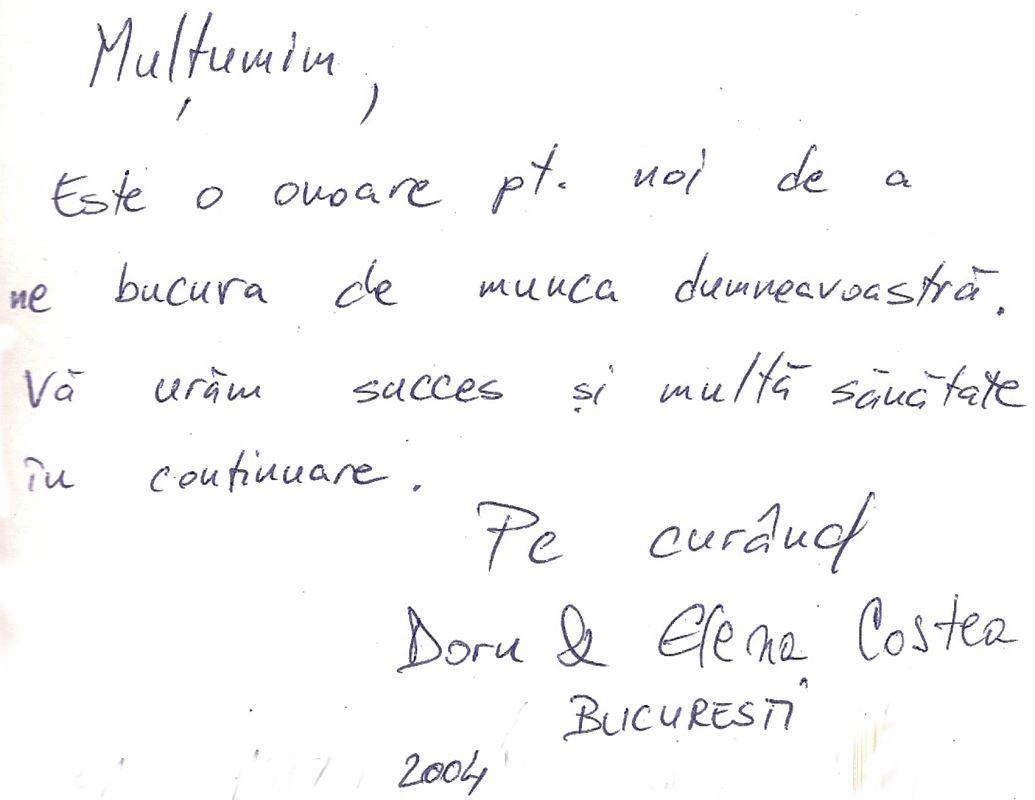 Mulțumim,
Este o onoare pt. noi de a
ne bucura de munca dumneavoastră.
Vă urăm succes și multă sănătate
în continuare.
Pe curând
Doru & Elena Costea
BUCURESTI
2004